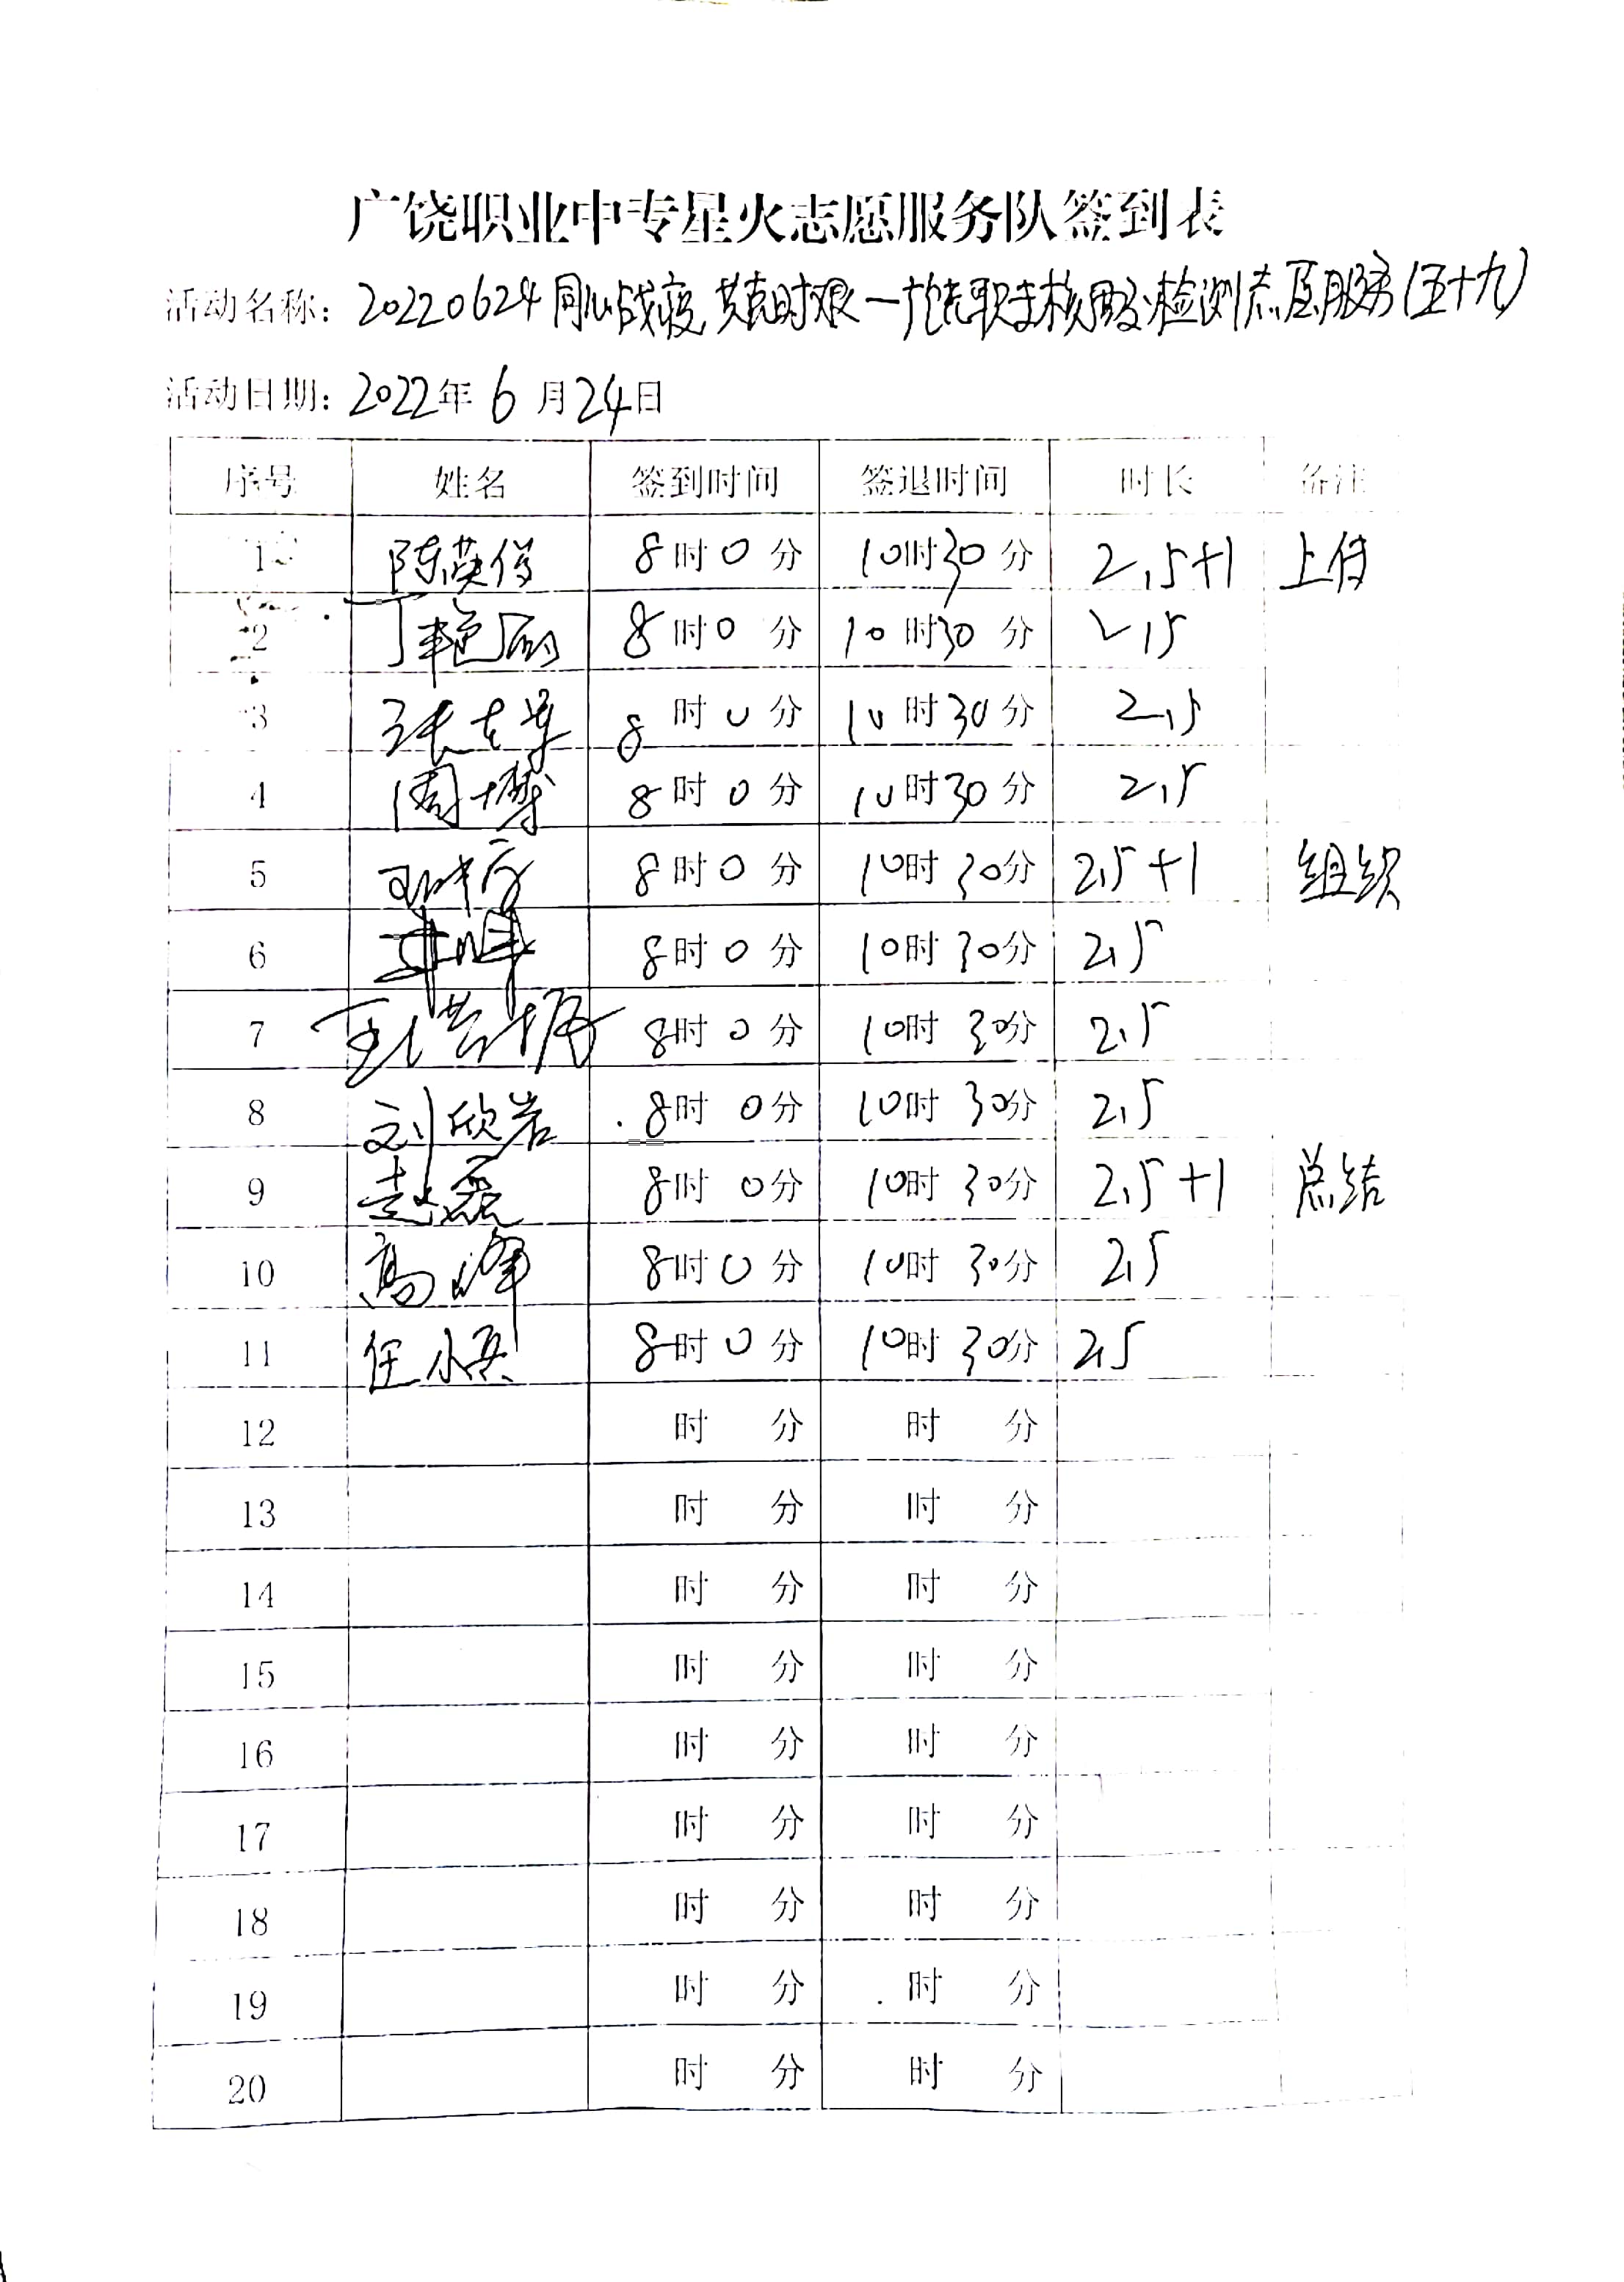 广饶职业中专星火志愿服务队签到表
活动名称：20220624同心战疫 共克时艰一广饶职专核酸检测志愿服务(五十九)
活动日期：2022年6月24日
序号 姓名 签到时间 签退时间 时长 备注
1 陈英俊 8时0分 10时30分 2.5+1 上传
2 丁艳丽 8时0分 10时30分 2.5
3 张 8时0分 10时30分 2.5
4 周博 8时0分 10时30分 2.5
5 8时0分 10时30分 2.5+1 组织
6 8时0分 10时30分 2.5
7 8时0分 10时30分 2.5
8 刘欣岩 8时0分 10时30分 2.5
9 赵磊 8时0分 10时30分 2.5+1 总结
10 高峰 8时0分 10时30分 2.5
11 任小兵 8时0分 10时30分 2.5
12 时 分 时 分
13 时 分 时 分
14 时 分 时 分
15 时 分 时 分
16 时 分 时 分
17 时 分 时 分
18 时 分 时 分
19 时 分 时 分
20 时 分 时 分